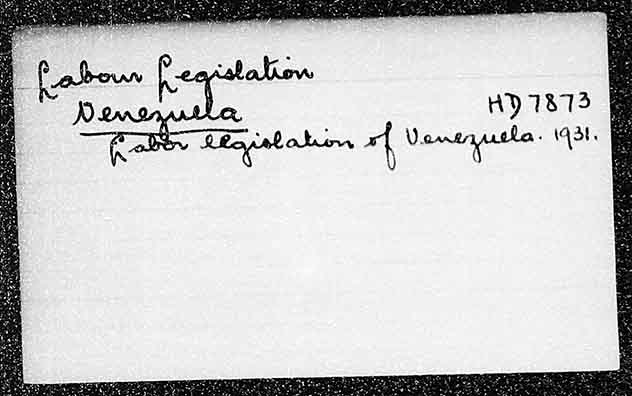 Labour Legislation
Venezuela HD 7873
Labor legislation of Venezuela. 1931.